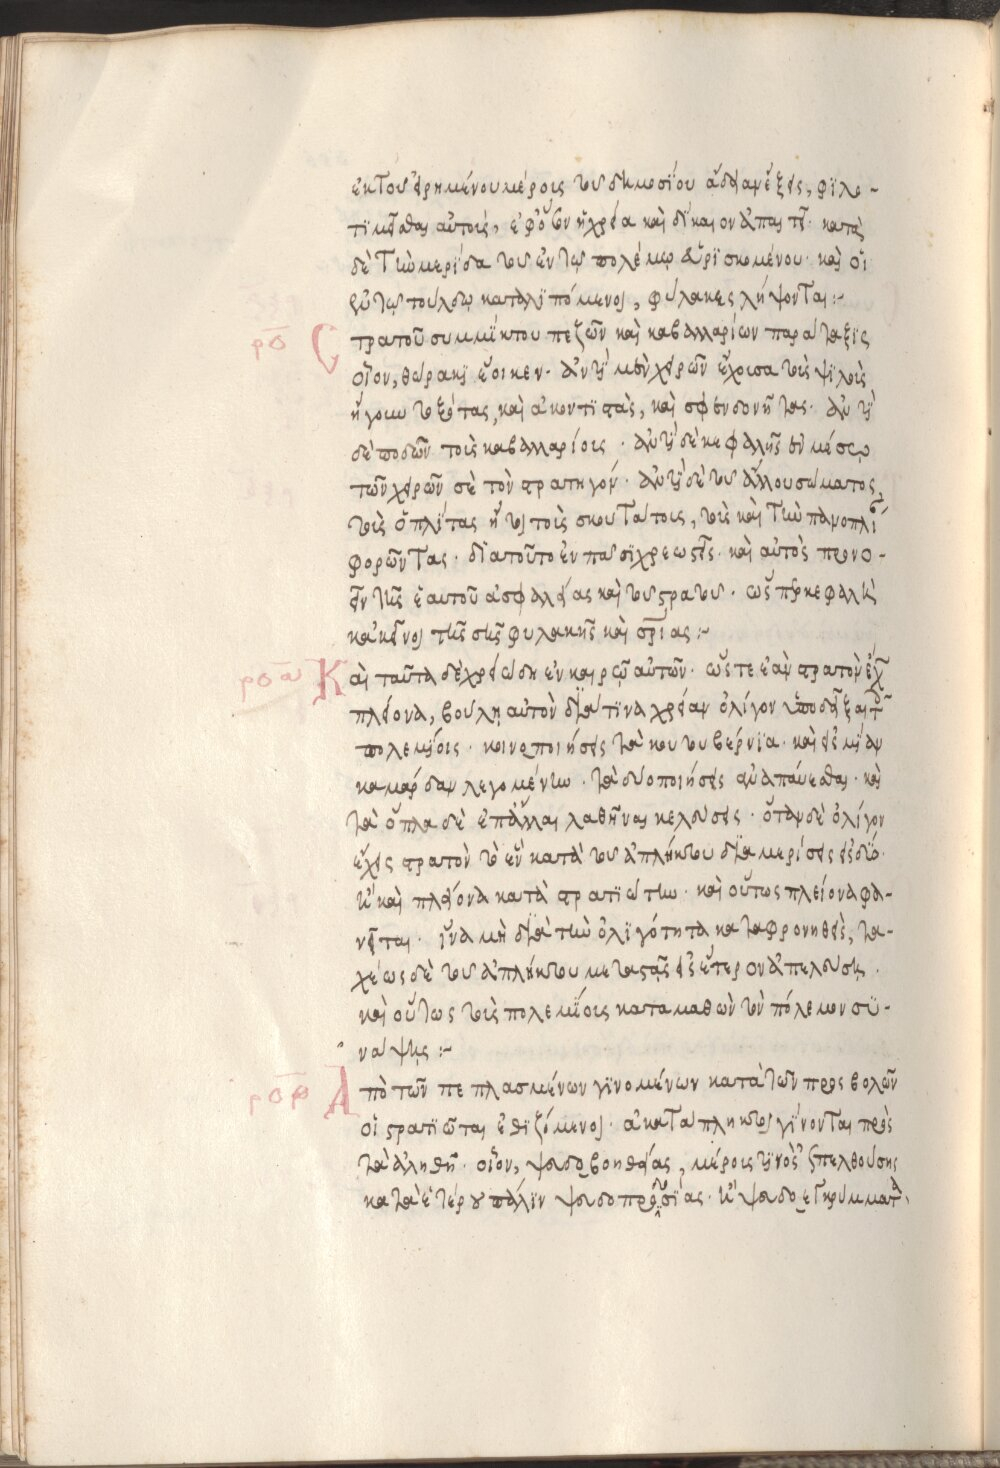 ἐκ τοῦ εἰρημένου μέρους τοῦ δημοσίου ἄδειαν ἕξεις, φιλο-
τιμεῖσθαι αὐτοὺς, ἐφ' οὗ ἂν ἡ χρεία καὶ δίκαιον ἀπαιτεῖ· κατὰ
δὲ τὴν μερίδα τοῦ ἐν τῷ πολέμῳ εὑρισκομένου· καὶ οἱ
ἐν τῷ τούλδῳ καταλιπόμενοι, φύλακες λήψονται :-
ρο Στρατοῦ συμμίκτου πεζῶν καὶ καβαλλαρίων παράταξις
οἷον, θώρακι ἔοικεν· ἀντὶ μὲν χειρῶν ἔχουσα τοὺς ψιλοὺς
ἤγουν τοξότας, καὶ ἀκοντιστὰς, καὶ σφενδονήτας· ἀντὶ
δὲ ποδῶν τοὺς καβαλλαρίους· ἀντὶ δὲ κεφαλῆς ἐν μέσῳ
τῶν χειρῶν σὲ τὸν στρατηγόν· ἀντὶ δὲ τοῦ ἄλλου σώματος,
τοὺς ὁπλίτας ἤτοι τοὺς σκουτάτους, τοὺς καὶ τὴν πανοπλίαν
φοροῦντας· διατοῦτο ἐν πᾶσι χρεωστεῖς· καὶ αὐτὸς προνο-
εῖν τῆς ἑαυτοῦ ἀσφαλείας καὶ τοῦ στρατοῦ· ὥσπερ κεφαλὴ
κἀκεῖνοι τῆς σῆς φυλακῆς καὶ σωτηρίας :-
ροα Καὶ ταῦτα δὲ χρειώδη ἐν καιρῷ αὐτῶν· ὥστε ἐὰν στρατὸν ἔχῃς
πλείονα, βουλη αὐτὸν διά τινα χρείαν ὀλίγον ὑποδεῖξαι τοῖς
πολεμίοις· κοινοποιήσεις τὰ κουτουβέρνια· καὶ εἰς μίαν
καμάρδαν λεγομένην· τὰ δύο ποιήσεις ἀναπαύεσθαι· καὶ
τὰ ὅπλα δὲ ἐπάλληλα τεθῆναι κελεύσεις· ὅταν δὲ ὀλίγον
ἔχεις στρατὸν τὸ ἓν κατὰ τοῦ ἀπλήκτου διαμερίσεις εἰς δύο·
καὶ πλείονα κατὰ στρατιώτην· καὶ οὕτως πλείονα φα-
νεῖται· ἵνα μὴ διὰ τὴν ὀλιγότητα καταφρονηθεὶς, τα-
χέως δὲ τοῦ ἀπλήκτου μεταστὰς εἰς ἕτερον ἀπελεύσῃ·
καὶ οὕτως τοὺς πολεμίους καταμαθὼν τὸν πόλεμον συ-
νάψῃς :-
ροβ Ἀπὸ τῶν πεπλασμένων γινομένων κατὰ τῶν προσβολῶν
οἱ στρατιῶται ἐθιζόμενοι· ἀκατάπληκτοι γίνονται πρὸς
τὰ ἀληθῆ· οἷον, ψευδοβοηθείας, μέρους τινὸς ἐξελθούσης
κατὰ ἑτέρου πάλιν ψευδοπροδοσίας· καὶ ψευδοεγκρύμματα,